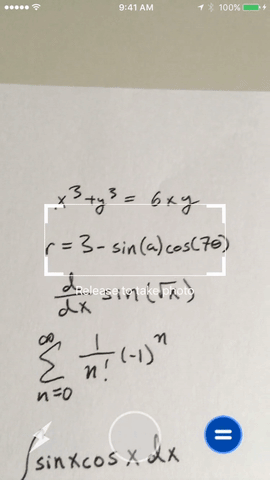 9:41 AM 100%
x³+y³ = 6xy
r = 3 - sin(a)cos(7θ)
d/dx sin(√x)
Release to take photo
∞
∑ 1/n! (-1)ⁿ
n=0
∫sinxcos x dx
=